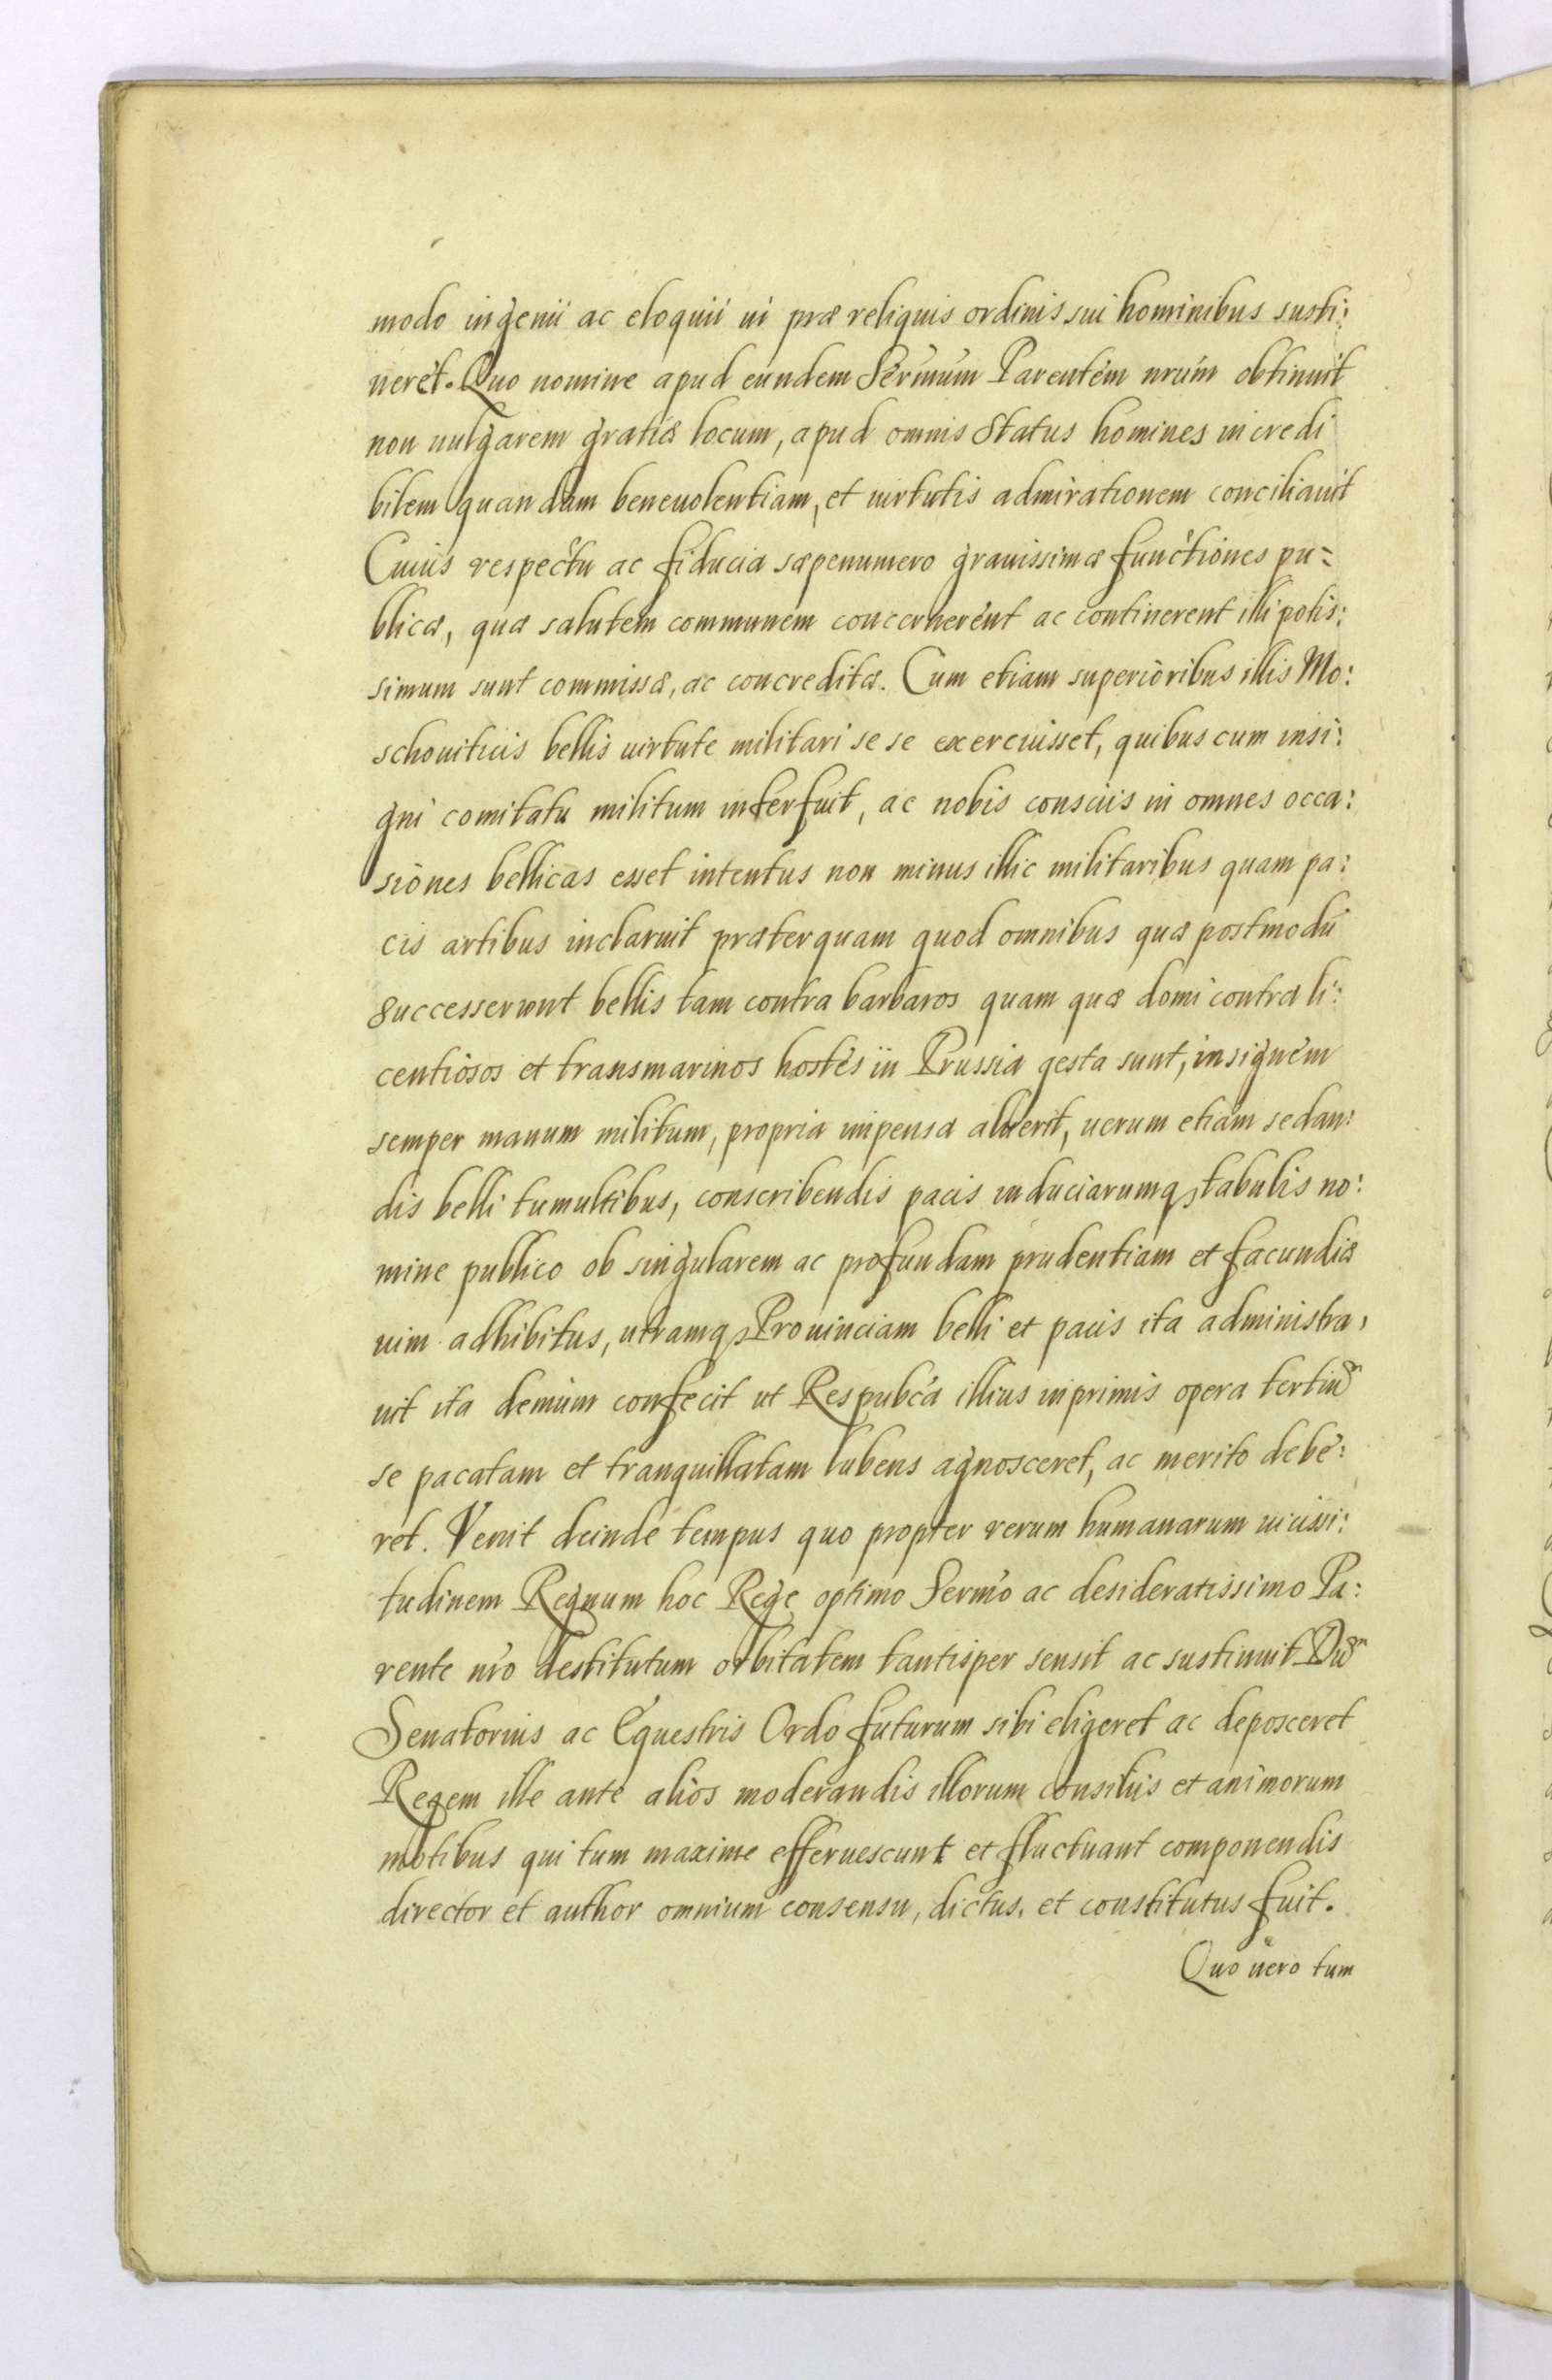 modo ingenii ac eloquii ui præ reliquis ordinis sui hominibus susti:
neret. Quo nomine apud eundem Sermum Parentem nrum obtinuit
non uulgarem gratiæ locum, apud omnis Status homines incredi
bilem quandam beneuolentiam, et uirtutis admirationem conciliauit
Cuius respectu ac fiducia sæpenumero grauissimæ functiones pu=
blicæ, quæ salutem communem concernerent ac continerent illi potis:
simum sunt commissæ, ac concreditæ. Cum etiam superioribus illis Mo:
schouiticis bellis uirtute militari se se exercuisset, quibus cum insi:
gni comitatu militum interfuit, ac nobis consciis in omnes occa:
siones bellicas esset intentus non minus illic militaribus quam pa:
cis artibus inclaruit præterquam quod omnibus quæ postmodū
successerunt bellis tam contra barbaros quam quæ domi contra li:
centiosos et transmarinos hostes in Prussia gesta sunt, insignem
semper manum militum, propria impensa aluerit, uerum etiam sedan:
dis belli tumultibus, conscribendis pacis induciarumq3 tabulis no:
mine publico ob singularem ac profundam prudentiam et facundiæ
uim adhibitus, utramq3 Prouinciam belli et pacis ita administra,
uit ita demum confecit ut Respubca illius inprimis opera
se pacatam et tranquillatam lubens agnosceret, ac merito debe:
ret. Venit deinde tempus quo propter rerum humanarum uicissi:
tudinem Regnum hoc Rege optimo Sermo ac desideratissimo Pa:
rente nro destitutum orbitatem tantisper sensit ac sustinuit
Senatorius ac Equestris Ordo futurum sibi eligeret ac deposceret
Regem ille ante alios moderandis illorum consiliis et animorum
motibus qui tum maxime efferuescunt et fluctuant componendis
director et author omnium consensu, dictus, et constitutus fuit.
Quo uero tum